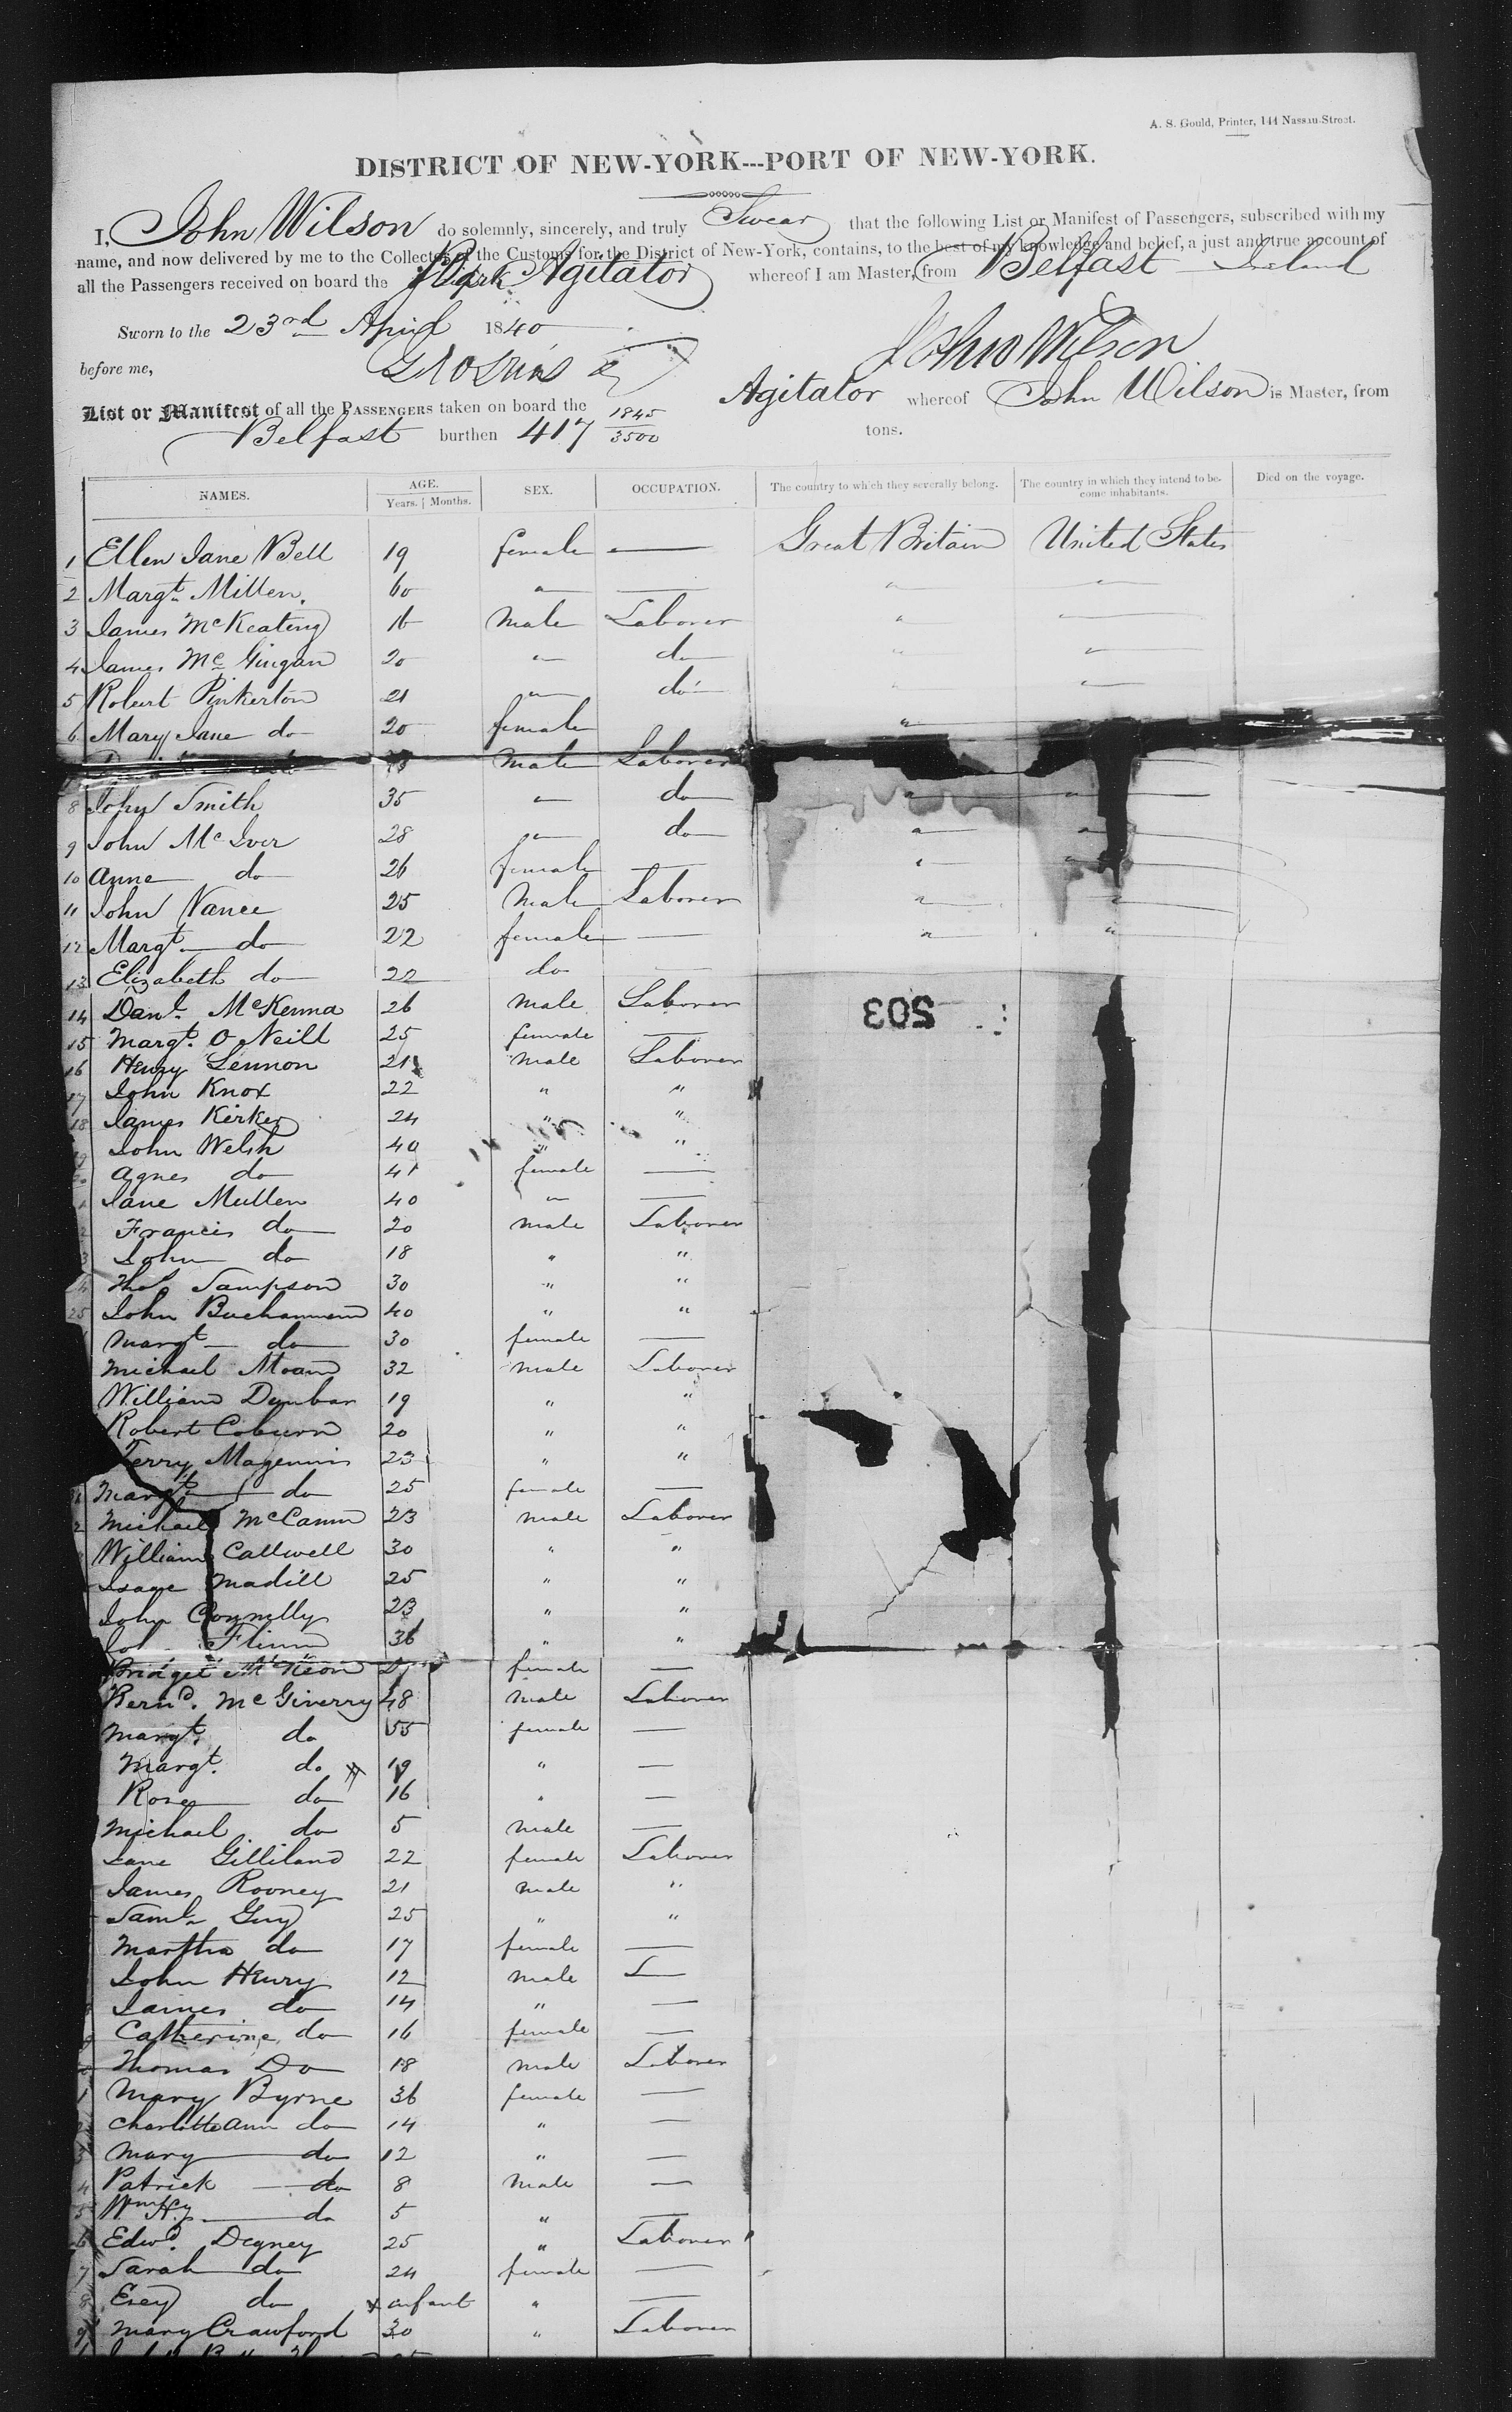 A. S. Gould, Printer, 144 Nassau-Street.
DISTRICT OF NEW-YORK---PORT OF NEW-YORK.
I, John Wilson do solemnly, sincerely, and truly Swear that the following List or Manifest of Passengers, subscribed with my
name, and now delivered by me to the Collector of the Customs for the District of New-York, contains, to the best of my knowledge and belief, a just and true account of
all the Passengers received on board the Bark Agitator whereof I am Master, from Belfast Ireland
Sworn to the 23rd April 1840
John Wilson
before me,
List or Manifest of all the PASSENGERS taken on board the Agitator whereof John Wilson is Master, from
Belfast burthen 417 1845/3500 tons.
NAMES. AGE. Years. Months. SEX. OCCUPATION. The country to which they severally belong. The country in which they intend to become inhabitants. Died on the voyage.
1 Ellen Jane Bell 19 female — Great Britain United States
2 Margt. Millen. 60 " — " "
3 James McKeating 16 Male Laborer " "
4 James Mc Gingan 20 " do " "
5 Robert Pinkerton 21 " do " "
6 Mary Jane do 20 female "
Male Laborer
8 John Smith 35 " do " "
9 John McIver 28 " do " "
10 Anne do 26 female — " "
11 John Vance 25 Male Laborer " "
12 Margt. do 22 female — " "
13 Elizabeth do 22 do —
14 Danl. McKenna 26 Male Laborer
503
15 Margt. O Neill 25 female —
16 Henry Lennon 21 male Laborer
17 John Knox 22 " "
18 James Kirker 24 " "
John Welsh 40 " "
Agnes do 41 female —
Jane Mullen 40 " —
Francis do 20 male Laborer
John do 18 " "
Thos Sampson 30 " "
25 John Buchannan 40 " "
Margt do 30 female —
Michael Moan 32 male Laborer
William Dunbar 19 " "
Robert Coburn 20 " "
Terry Magennis 23 " "
Margt do 25 female —
Michael McCann 23 male Laborer
William Callwell 30 " "
Isaac Madill 25 " "
John Connelly 23 " "
Flinn 36 " "
Bridget McKeon female —
Bernd. McGiverry 48 Male Laborer
Margt. do 55 female —
Margt. do 19 " —
Rose do 16 " —
Michael do 5 Male —
Jane Gilliland 22 female Laborer
James Rooney 21 male "
Saml Guy 25 " "
Martha do 17 female —
John Henry 12 male —
James do 14 " —
Catherine do 16 female —
Thomas Do 18 male Laborer
1 Mary Byrne 36 female —
2 Charlotte Ann do 14 " —
3 Mary do 12 " —
4 Patrick do 8 Male —
5 Wm Hy do 5 " —
6 Edwd. Degney 25 " Laborer
7 Sarah do 24 female —
8 do infant " —
9 Mary Crawford 30 " Laborer